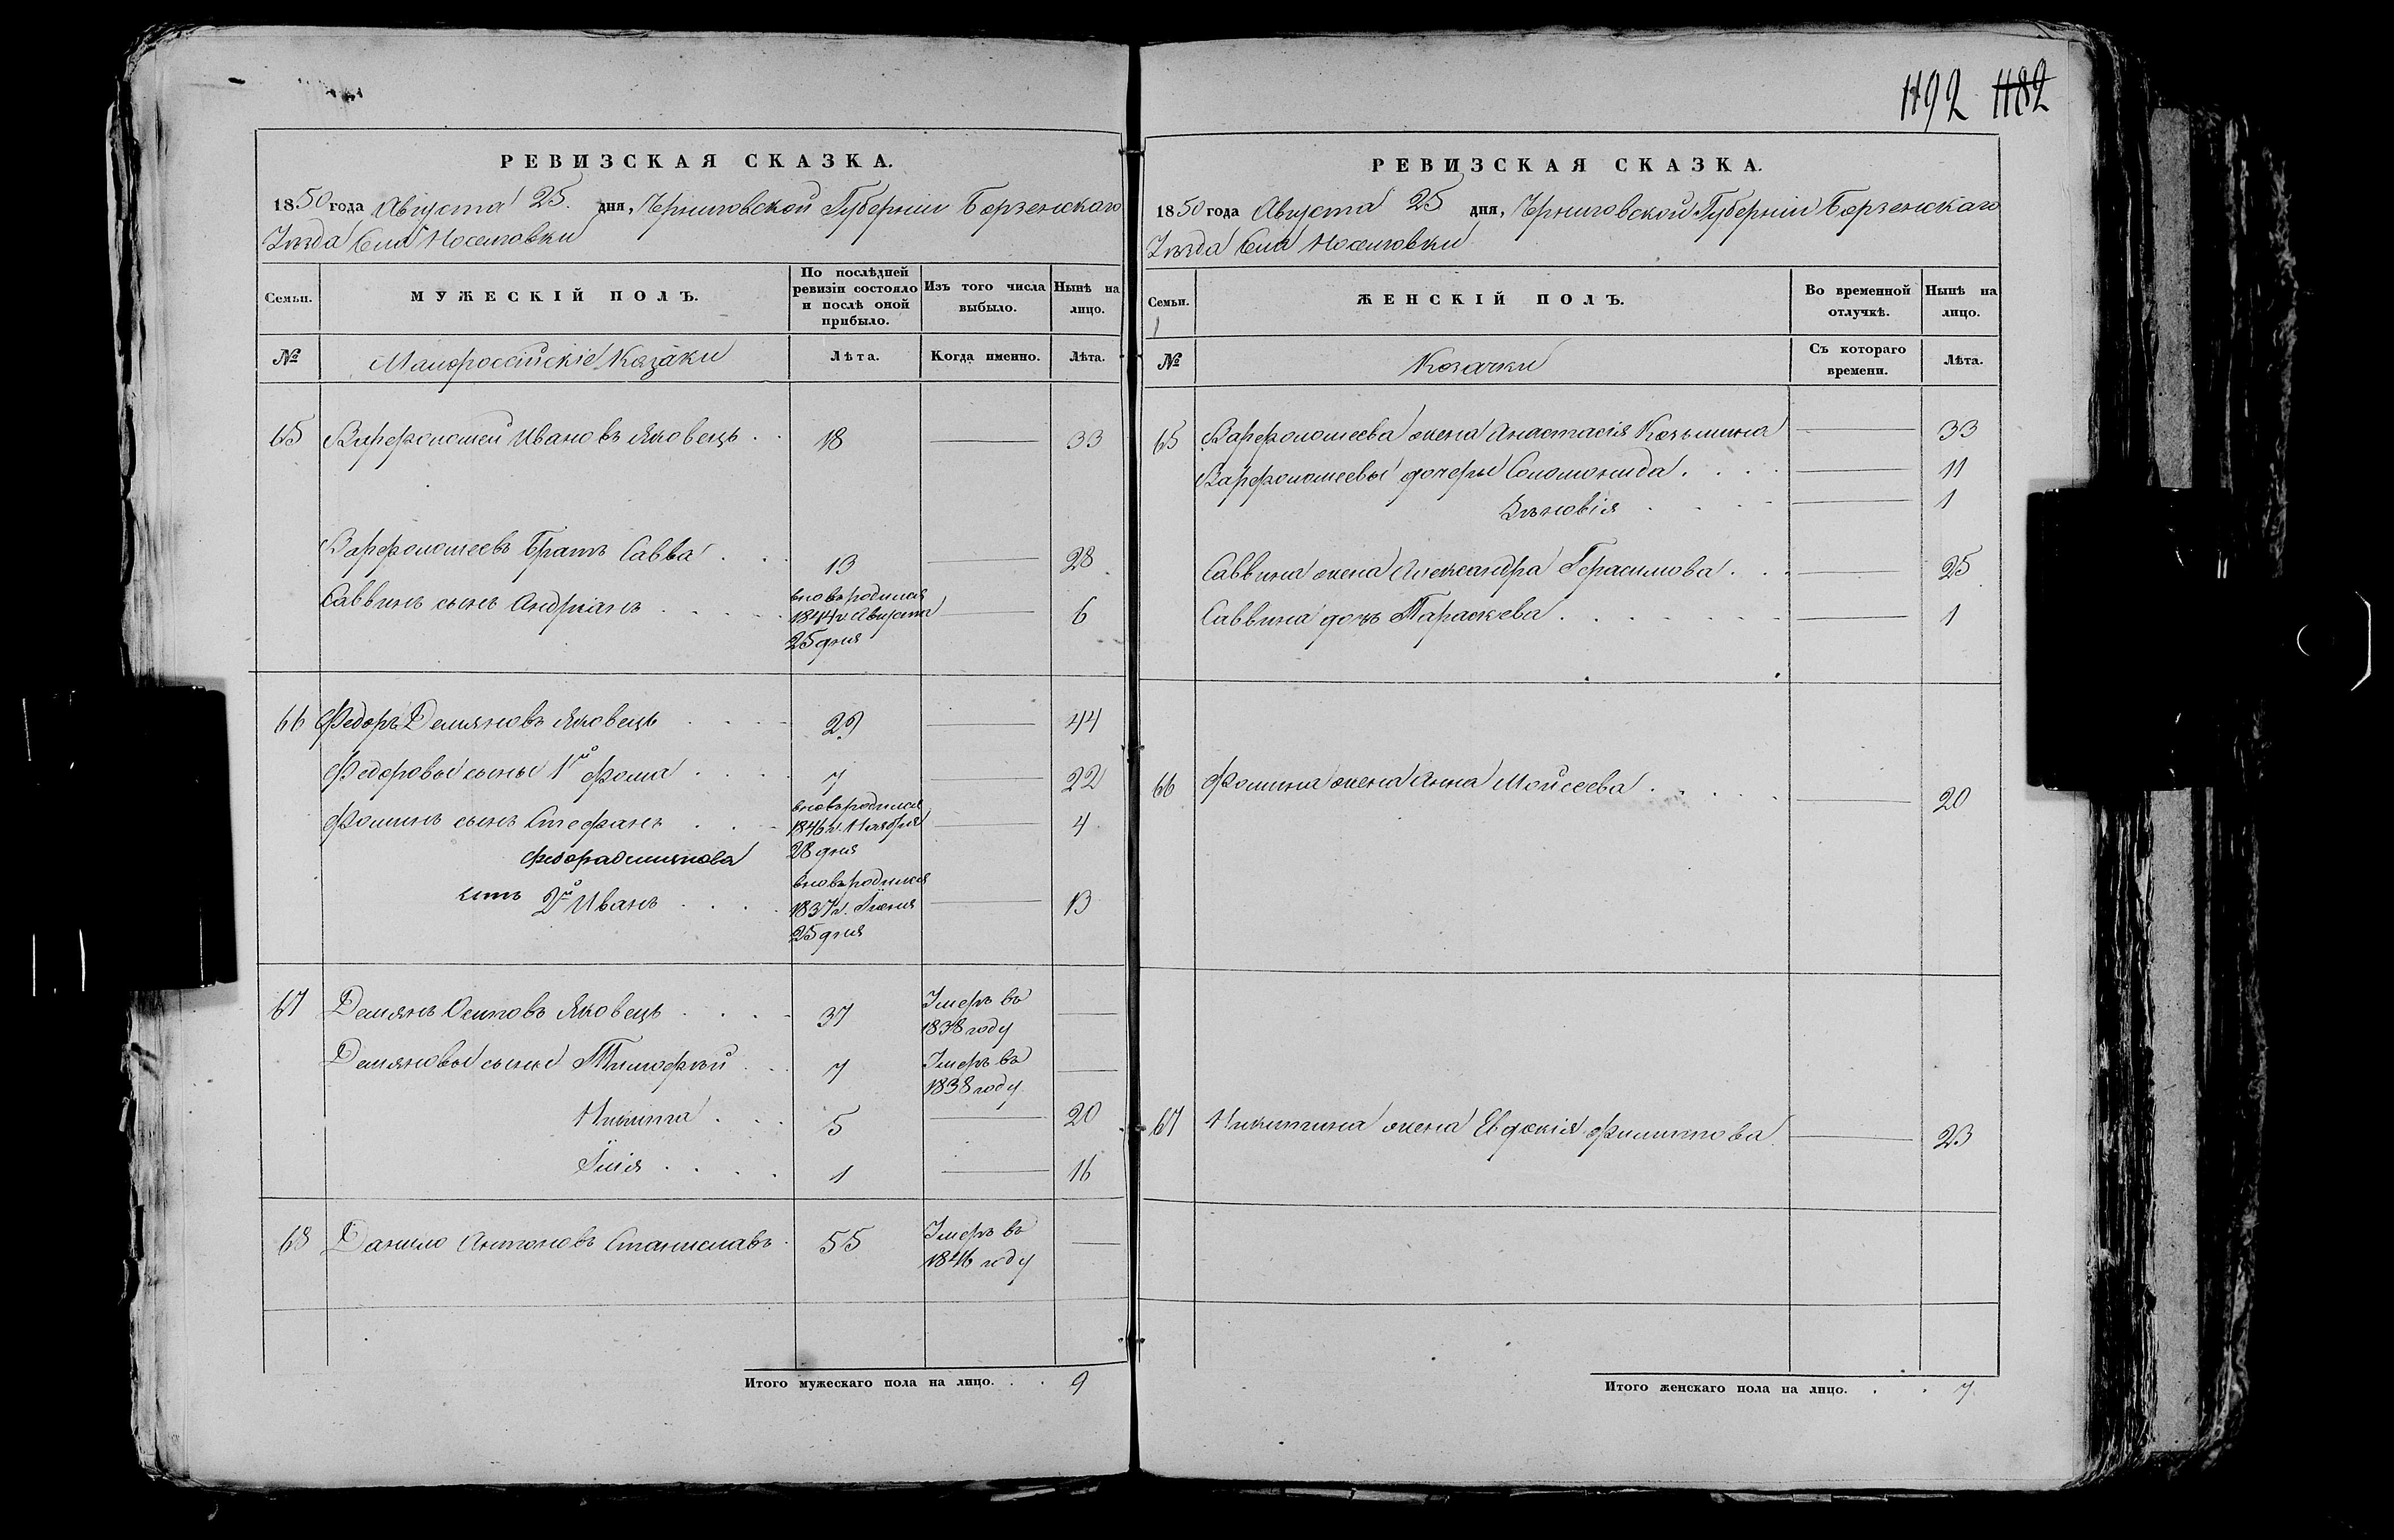 1192 1182
РЕВИЗСКАЯ СКАЗКА.
1850 года Августа 25. дня, Черниговской Губерніи Борзенскаго
Уѣзда Села Носеловки
Семьи.
МУЖЕСКІЙ ПОЛЪ.
По послѣдней ревизіи состояло и послѣ оной прибыло.
Изъ того числа выбыло.
Нынѣ на лицо.
№
Малороссійскіе Козаки
Лѣта.
Когда именно.
Лѣта.
65 Варфоломей Ивановъ Яковецъ 18 33
Варфоломеевъ Братъ Савва 13 28
Саввинъ сынъ Андріанъ вновь родился 6
1844 г. Августа
25 дня
66 Федоръ Демяновъ Яковецъ 29 44
Федоровы сыны 1й Фома 7 22
Фоминъ сынъ Стефанъ вновь родился 4
1846 г. Ноября
28 дня
Федора Демянова
сынъ 2й Иванъ вновь родился 13
1837 г. Іюня
25 дня
67 Демянъ Осиповъ Яковецъ 37 Умеръ въ
1838 году
Демяновы сыны Тимофѣй 7 Умеръ въ
1838 году
Никита 5 20
Илія 1 16
68 Данило Антоновъ Станиславъ 55 Умеръ въ
1846 году
Итого мужескаго пола на лицо. 9
РЕВИЗСКАЯ СКАЗКА.
1850 года Августа 25 дня, Черниговской Губерніи Борзенскаго
Уѣзда Села Носеловки
Семьи.
ЖЕНСКІЙ ПОЛЪ.
Во временной отлучкѣ.
Нынѣ на лицо.
№
Козачки
Съ котораго времени.
Лѣта.
65 Варфоломеева жена Анастасія Козьмина 33
Варфоломеевы дочеры Соломонида 11
Зѣновія 1
Саввина жена Александра Герасимова 25
Саввина дочь Параскева 1
66 Фомина жена Анна Мойсеева 20
67 Никитина жена Евдокія Филипова 23
Итого женскаго пола на лицо. 7.